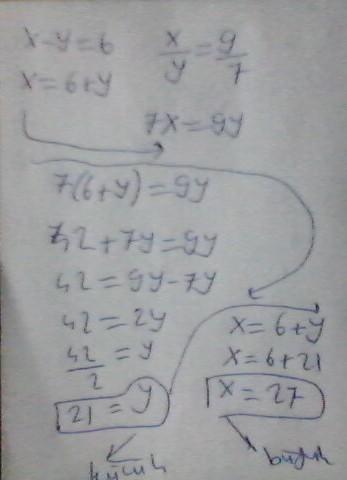 x-y=6
x=6+y
x/y=9/7
7x=9y
7(6+y)=9y
42+7y=9y
42=9y-7y
42=2y
42/2=y
21=y
küçük
x=6+y
x=6+21
x=27
büyük